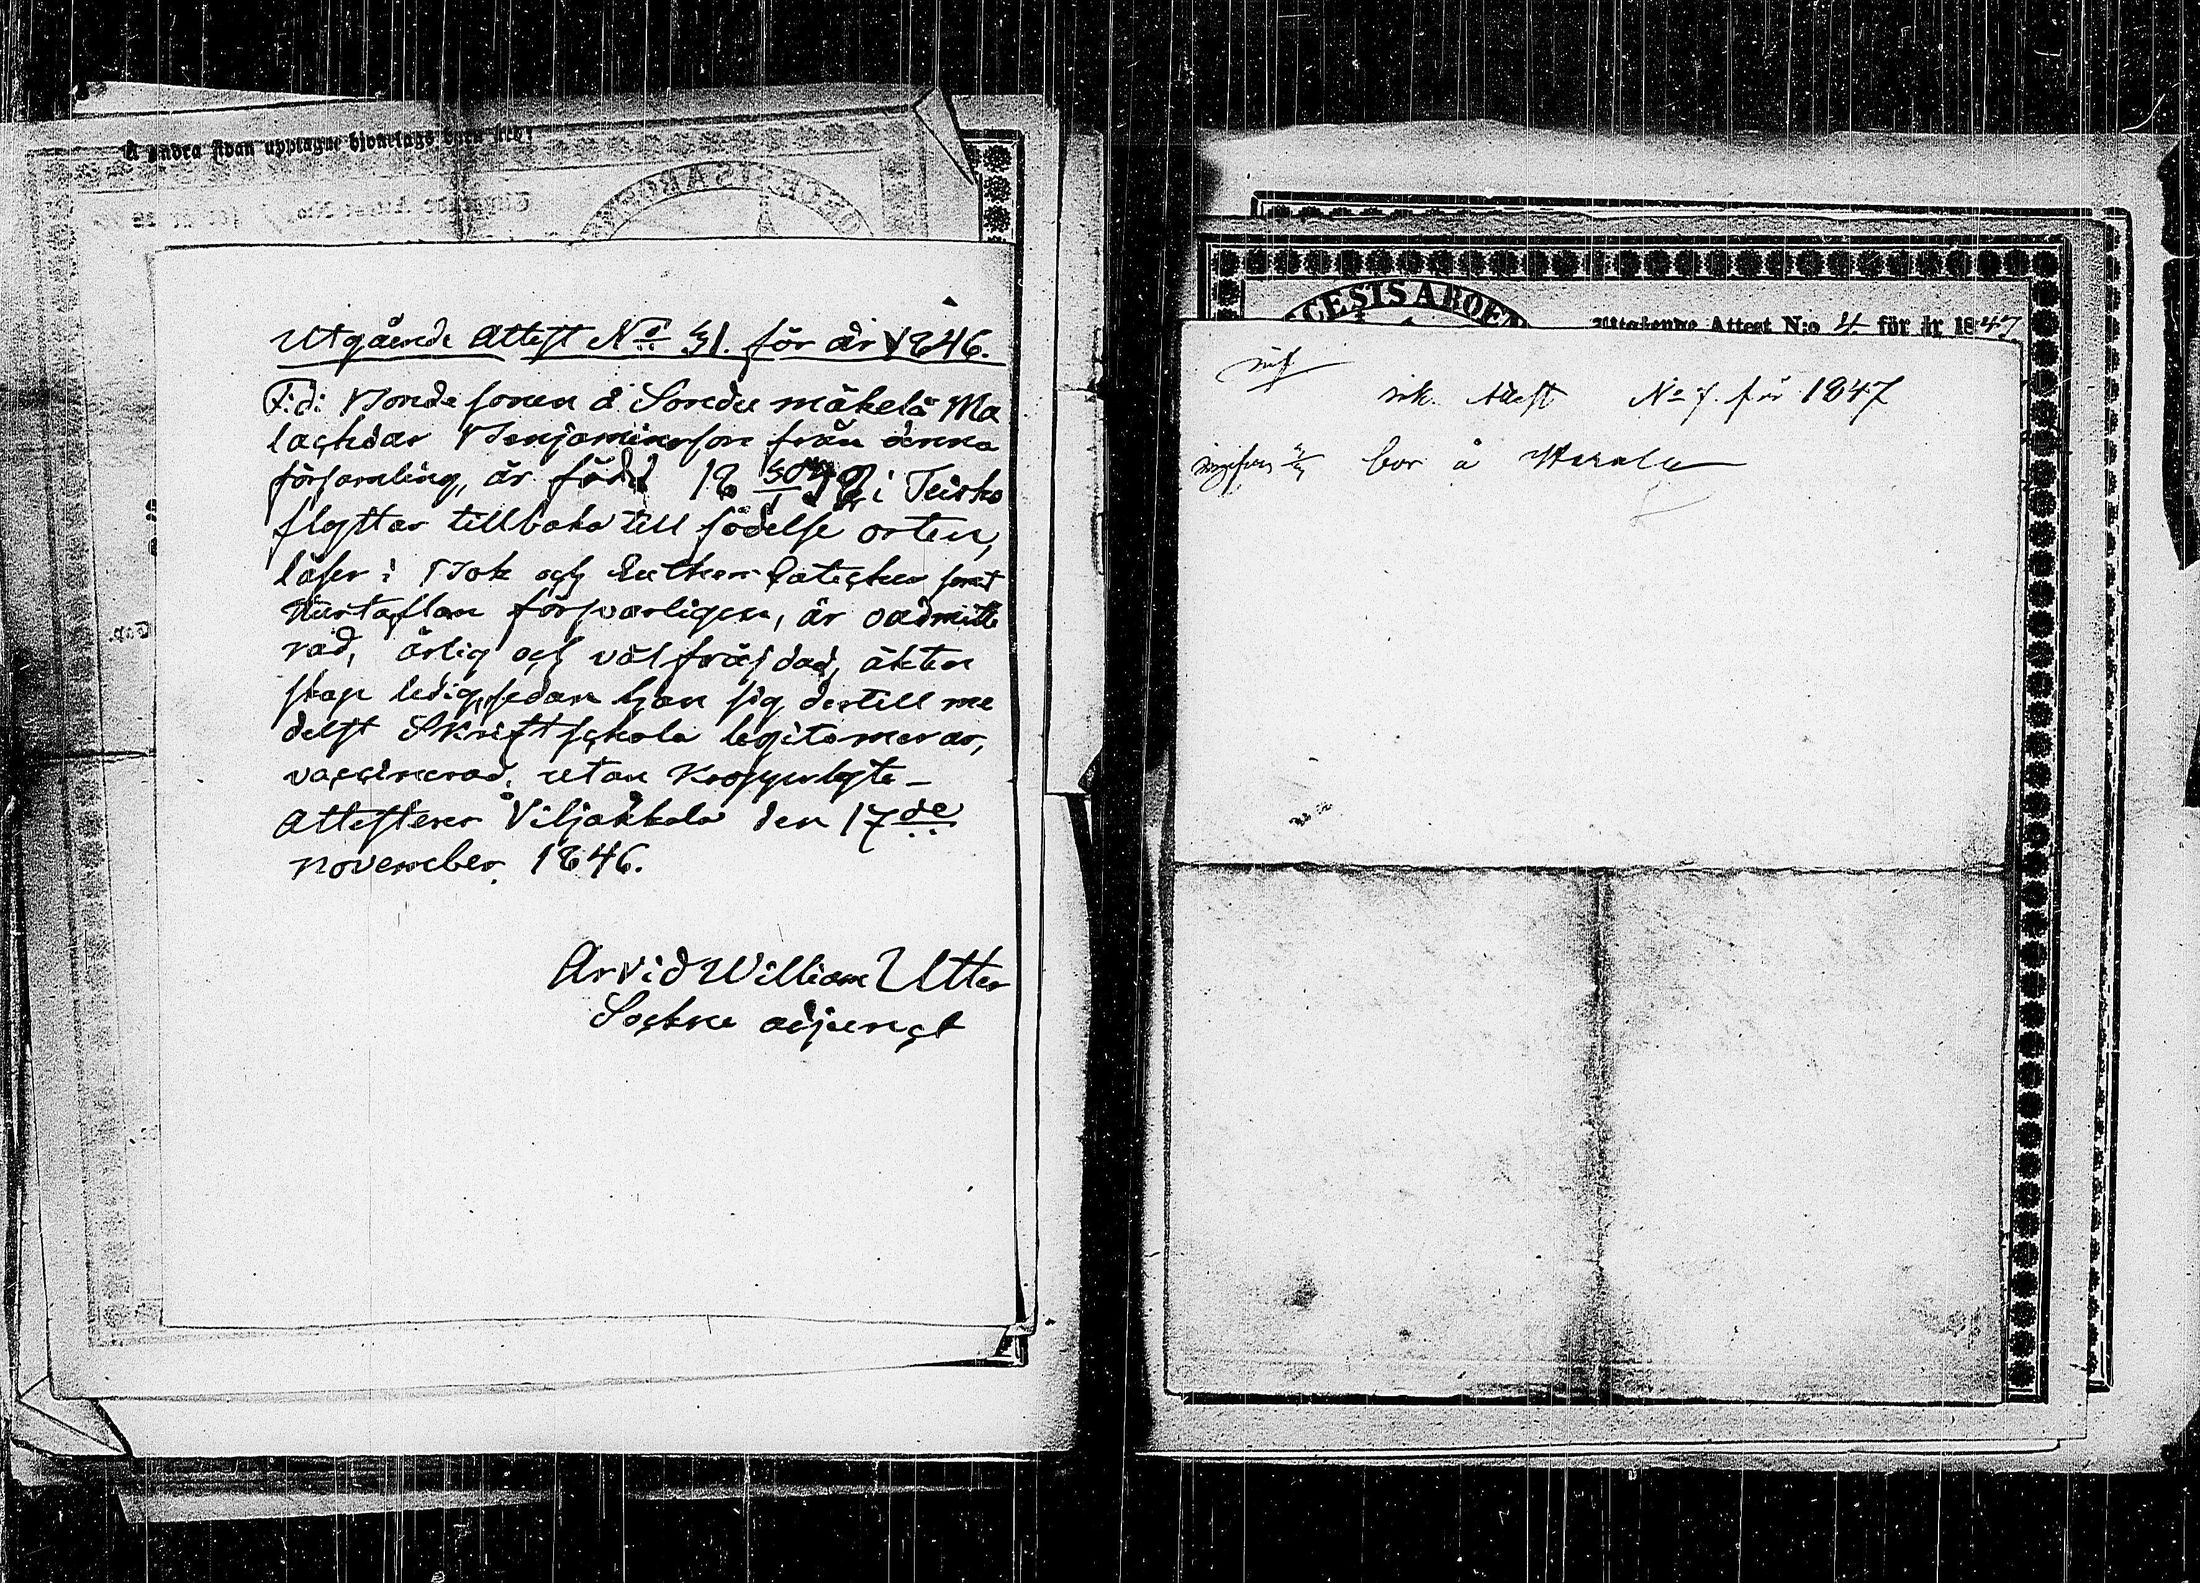 Å andra sidan upptagne hjonelags barn äro:
Utgående Attest No för år 18
Utgående Attest No 31. för år 1846.
F.d. Bonde sonen å Sordu mäkelä Ma
lachias Benjaminsson från denna
församling, är född 18 30/1 i Teisko
flyttar tillbaka till födelse orten,
läser i Bok och Lutheri Cateches samt
Hustaflan försvarligen, är oadmitte
rad, ärlig och välfräjdad, äkten
skap ledig, sedan han sig dertill me
delst Skriftschola legitimerar,
vaccinerad, utan Kroppslyte –
Attesterar Viljakkala den 17de
november 1846.
Arvid William Utter
Sockne adjunct
CESIS ABOEN
Utgående Attest N:o 4 för år 1847
ink. Attest No 7. för 1847
bor å